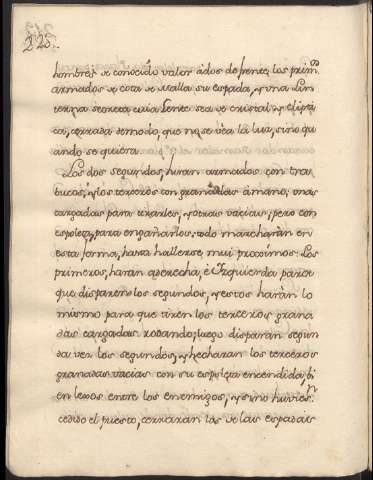 225.
hombres de conocido valor ados de frente, los prim.os
armados de cota de malla su espada, y una Lin
terna secreta cuia Lente sea de cristal, y elipti
ca, cerrada de modo, que no se vea la luz, sino qu
ando se quiera.
Los dos segundos, hiran armados con tra
bucos, y los terceros con granadas á mano; unas
cargadas para tirarles, y otras vacias; pero con
espoleta, para engañarlos: todo marcharàn en
esta forma, hasta hallerse mui proximos: Los
primeros, haran aderecha, è Izquierda para
que disparen los segundos, y estos haràn lo
mismo para que tiren los terceros grana
das cargadas rodando; luego disparan segun
da vez los segundos, y hecharan los terceros
granadas vacias con su espoleta encendida, bi
en lexos entre los enemigos, y si no huvies.n
cedido el puesto, cerraràn los de las espadas